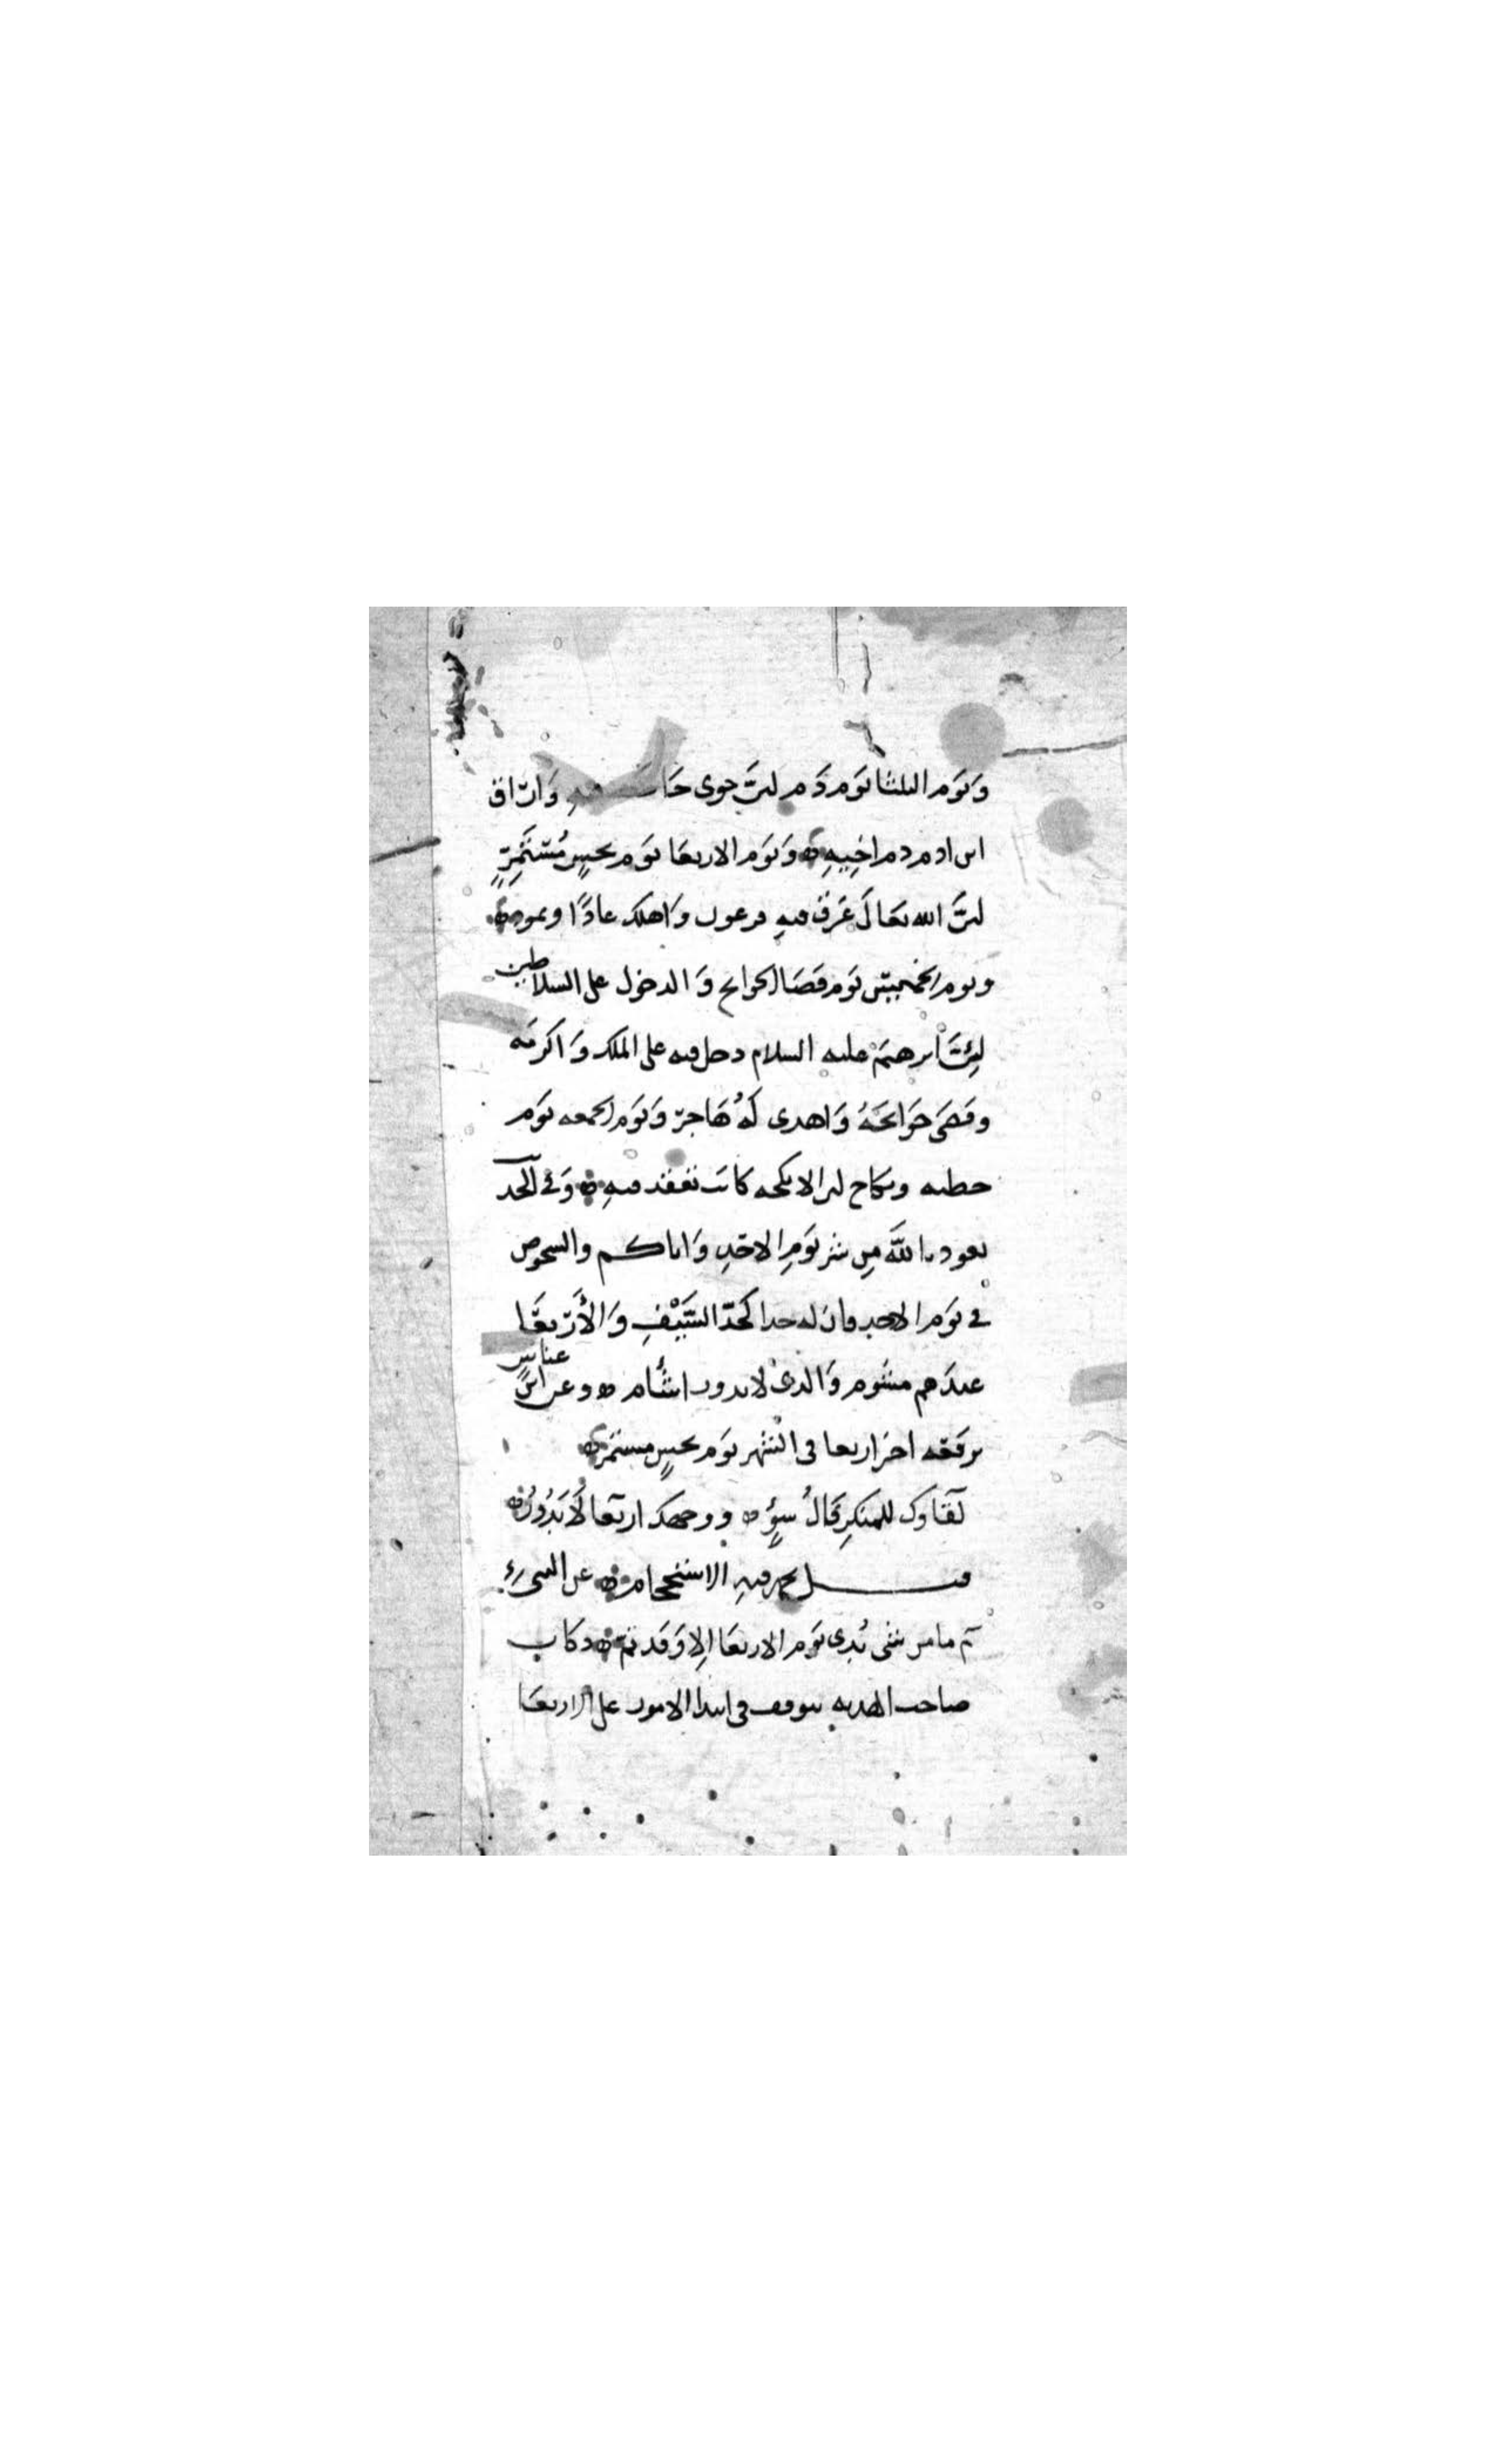 وَيَوم الثلثا يَوم دَم لانَّ حوى حَاضت فيهِ وَاراق
ابن ادم دم اخِيهِ ه وَيَوم الاربعا يَوم نحسٍ مُستَمِرٍّ
لانَّ الله تعَالى غَرق فيهِ فرعون وَاهلك عادًا وثمود ه
ويوم الخميس يَوم قضَا الحوايج وَالدخول على السلاطين
لانَّ ابرهيم عليه السلام دخل فيه على الملك وَاكرمَه
وقضى حَوَايجَهُ وَاهدى لَهُ هَاجر وَيَوم الجمعه يَوم
خطبه ونكاح لان الانكحه كانت تعقد فيهِ ه وَفي الحد
نعوذ بالله مِن شر يَومِ الاحَدِ وَاياكم والشخوص
في يَوم الاحد فان له حدا كحَدّ السَّيْفِ وَالأربعَا
عندَهم مشوم وَالذى لا يدور اشأم ه وعن ابن عباسٍ
يرفعه اخر اربعا في الشهر يَوم نحسٍ مستمر ه
لقاوك للمبكرِ فَالُ سوءٍ ه ووجهك اربعا لَا يَدُورُ ه
قيل يحمد فيهِ الاستحمام ه عن
ثم ما من شى بُدِى يَوم الاربعَا اِلا وَقد تمّ ه وكان
صاحب الهدايه يتوقف في ابتدا الامور على الاربعَا